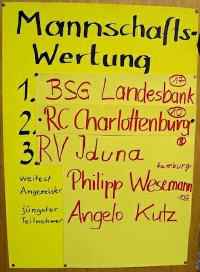 Mannschafts-
Wertung
1. BSG Landesbank 17
2. RC Charlottenburg 10
3. RV Iduna 8
Hamburg
weitest Angereister Philipp Wesemann
jüngster Teilnehmer Angelo Kutz